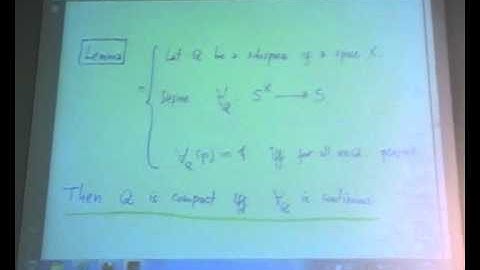 Lemma
= Let Q be a subspace of a space X.
Define ∀_Q : S^X → S
∀_Q(p) = 1 iff for all x∈Q,
Then Q is compact iff ∀_Q is continuous